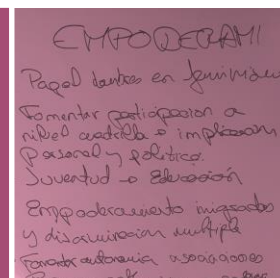 EMPODERAMI
Papel en feminismo
Fomentar participacion a
nivel e implicacion
Personal y política.
Juventud → Educación
Empoderamiento
y discriminacion multiple
Fomentar autonomia asociaciones